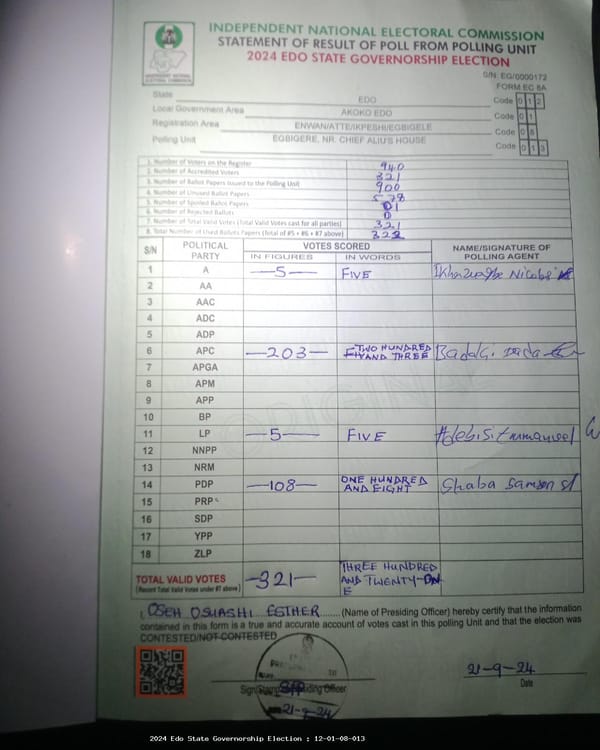 INDEPENDENT NATIONAL ELECTORAL COMMISSION
STATEMENT OF RESULT OF POLL FROM POLLING UNIT
2024 EDO STATE GOVERNORSHIP ELECTION
S/N: EG/0000172
FORM EC 8A
State EDO Code 0 1 2
Local Government Area AKOKO EDO Code 0 1
Registration Area ENWAN/ATTE/IKPESHI/EGBIGELE Code 0 8
Polling Unit EGBIGERE, NR. CHIEF ALIU'S HOUSE Code 0 1 3
1. Number of Voters on the Register 940
2. Number of Accredited Voters 321
3. Number of Ballot Papers Issued to the Polling Unit 900
4. Number of Unused Ballot Papers 578
5. Number of Spoiled Ballot Papers 01
6. Number of Rejected Ballots 0
7. Number of Total Valid Votes (Total Valid Votes cast for all parties) 321
8. Total Number of Used Ballots Papers (Total of #5 + #6 + #7 above) 322
S/N POLITICAL PARTY VOTES SCORED NAME/SIGNATURE OF POLLING AGENT
IN FIGURES IN WORDS
1 A -5- FIVE
2 AA
3 AAC
4 ADC
5 ADP
6 APC -203- TWO HUNDRED AND THREE
7 APGA
8 APM
9 APP
10 BP
11 LP -5- FIVE Adebisi Emmanuel
12 NNPP
13 NRM
14 PDP -108- ONE HUNDRED AND EIGHT Shaba Samson
15 PRP
16 SDP
17 YPP
18 ZLP
TOTAL VALID VOTES -321- THREE HUNDRED AND TWENTY-ONE
(Record Total Valid Votes under #7 above)
I, OSEH OSUASHI ESTHER (Name of Presiding Officer) hereby certify that the information
contained in this form is a true and accurate account of votes cast in this polling Unit and that the election was
CONTESTED/NOT CONTESTED
Sign/Stamp Presiding Officer
21-9-24
21-9-24
Date
2024 Edo State Governorship Election : 12-01-08-013